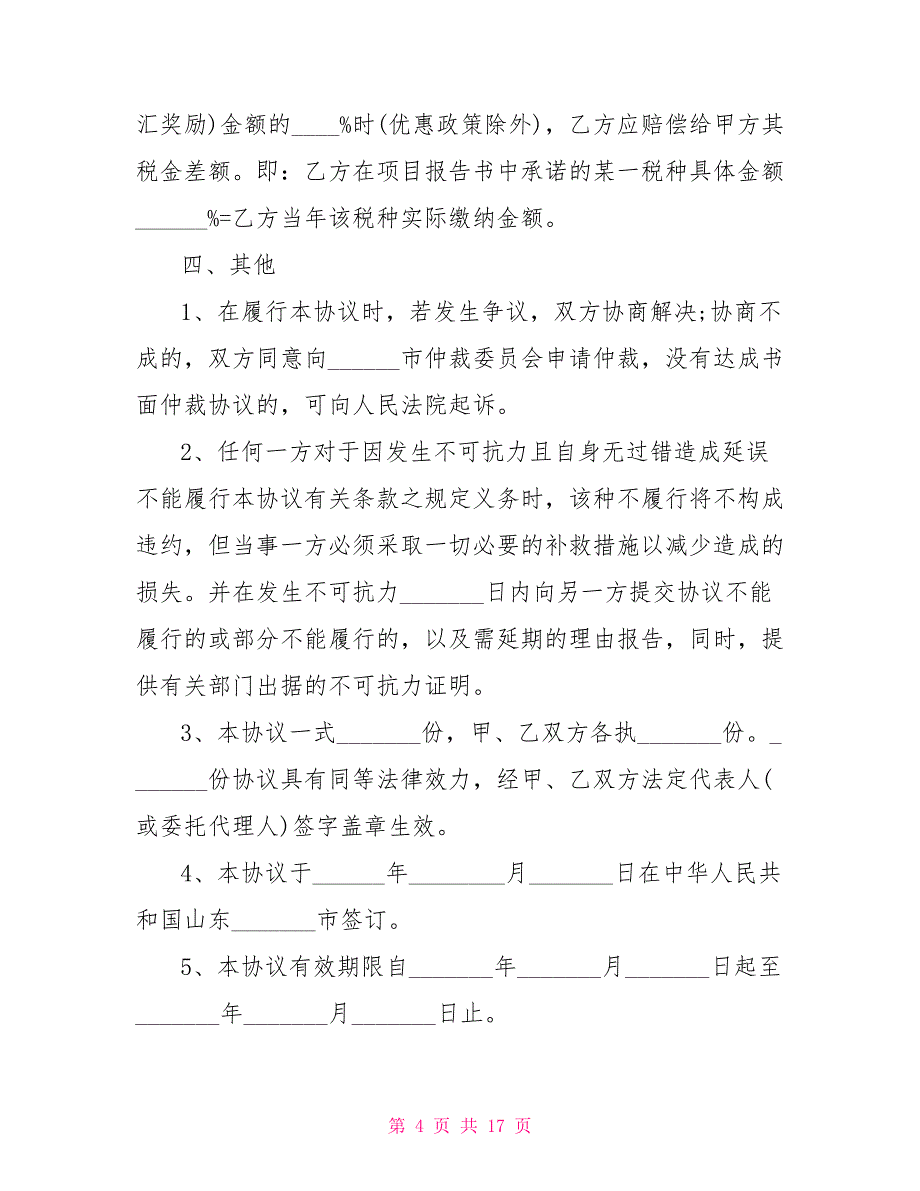 汇奖励)金额的____%时(优惠政策除外)，乙方应赔偿给甲方其
税金差额。即：乙方在项目报告书中承诺的某一税种具体金额
______%=乙方当年该税种实际缴纳金额。
四、其他
1、在履行本协议时，若发生争议，双方协商解决;协商不
成的，双方同意向______市仲裁委员会申请仲裁，没有达成书
面仲裁协议的，可向人民法院起诉。
2、任何一方对于因发生不可抗力且自身无过错造成延误
不能履行本协议有关条款之规定义务时，该种不履行将不构成
违约，但当事一方必须采取一切必要的补救措施以减少造成的
损失。并在发生不可抗力_______日内向另一方提交协议不能
履行的或部分不能履行的，以及需延期的理由报告，同时，提
供有关部门出据的不可抗力证明。
3、本协议一式_______份，甲、乙双方各执_______份。_
______份协议具有同等法律效力，经甲、乙双方法定代表人(
或委托代理人)签字盖章生效。
4、本协议于______年________月_______日在中华人民共
和国山东_______市签订。
5、本协议有效期限自_______年_______月_______日起至
_______年_______月_______日止。
第 4 页 共 17 页